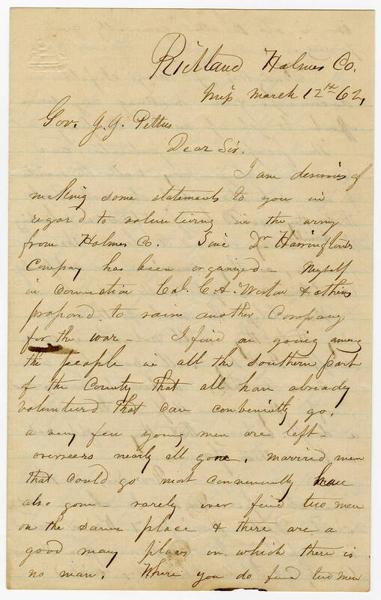 Richland Holmes Co.
Miss March 12th 62,
Gov. J. J. Pettus
Dear Sir.
I am desirous of
making some statements to you in
regard to volunteering in the army
from Holmes Co. Since Dr
Company has been organized - Myself
in connection Col. C. A. & others
proposed to raise another Company
for the war - I find on going among
the people in all the southern part
of the County that all have already
volunteered that can conveniently go.
a very few young men are left -
overseers nearly all gone. married men
that could go most conveniently have
also gone - rarely ever find two men
on the same place & there are a
good many places on which there is
no man. Where you do find two men